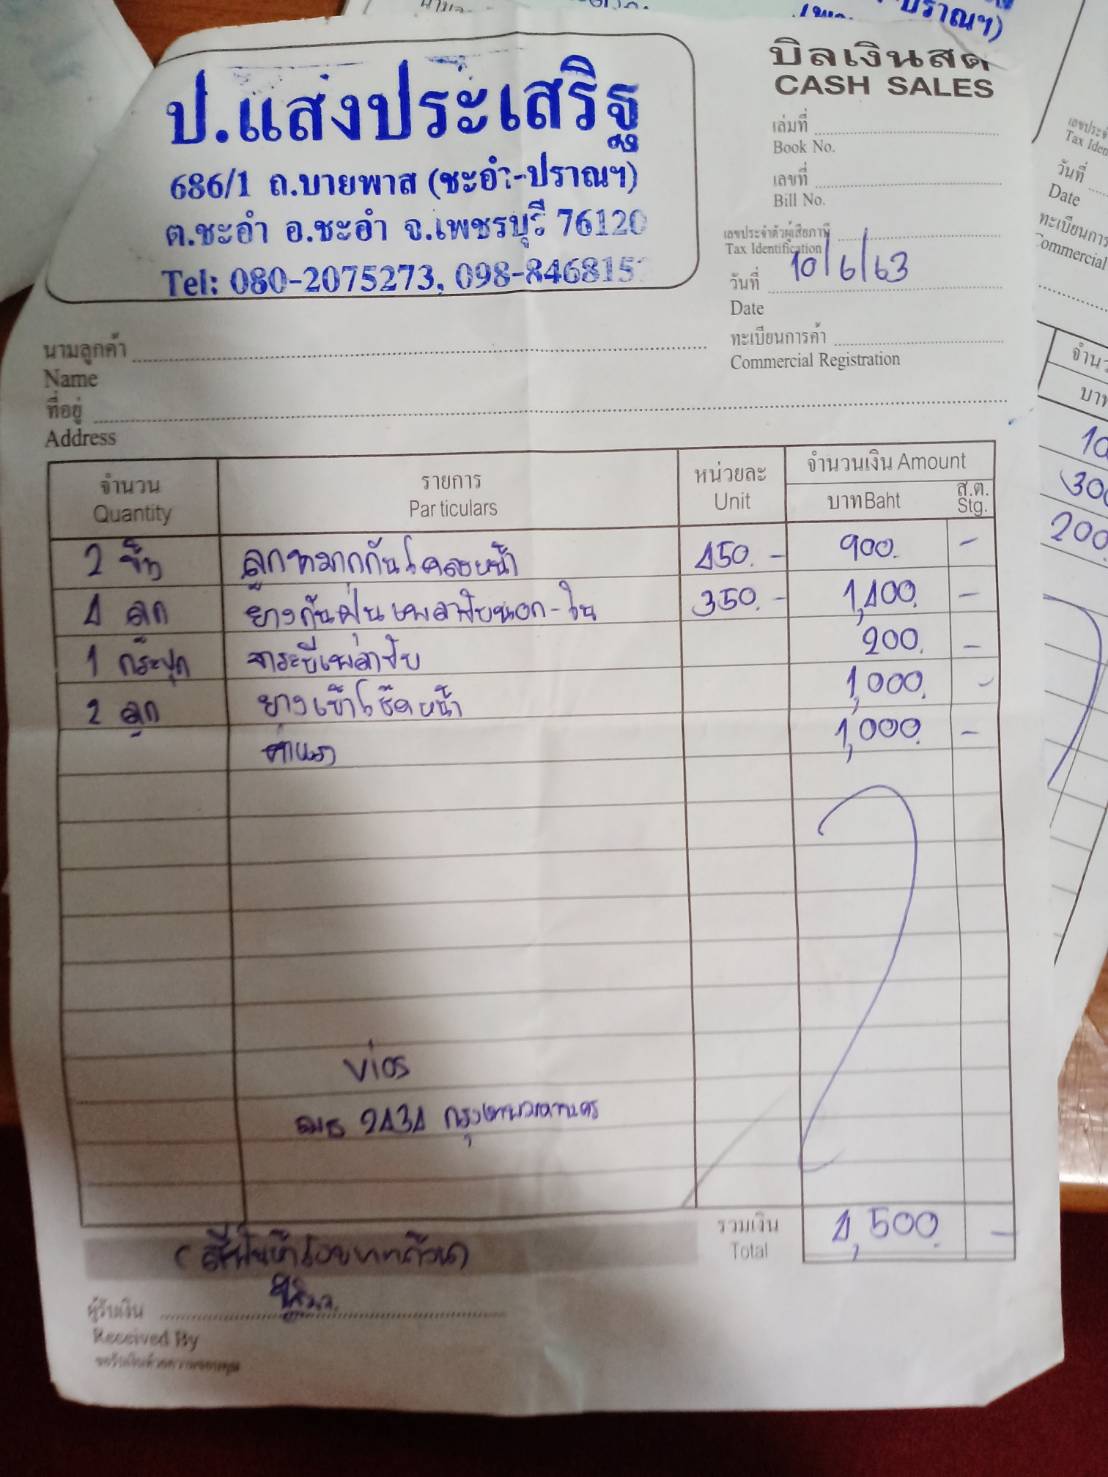 บิลเงินสด
CASH SALES
ป.แสงประเสริฐ
686/1 ถ.บายพาส (ชะอำ-ปราณฯ)
ต.ชะอำ อ.ชะอำ จ.เพชรบุรี 76120
Tel: 080-2075273, 098-846815
เล่มที่
Book No.
เลขที่
Bill No.
เลขประจำตัวผู้เสียภาษี
Tax Identification
วันที่ 10/6/63
Date
ทะเบียนการค้า
Commercial Registration
นามลูกค้า
Name
ที่อยู่
Address
จำนวน รายการ หน่วยละ จำนวนเงิน Amount
Quantity Particulars Unit บาท Baht ส.ต. Stg.
2 ชิ้น ลูกหมากกันโคลงหน้า 450.- 900. -
4 ลูก ยางกันฝุ่นเพลาขับนอก-ใน 350.- 1,400. -
1 กระปุก จาระบีเพลาขับ 200. -
2 ลูก ยางเบ้าโช๊คหน้า 1,000. -
ค่าแรง 1,000. -
vios
2434 กรุงเทพมหานคร
รวมเงิน 4,500. -
Total
(สี่พันห้าร้อยบาทถ้วน)
ผู้รับเงิน
Received By
ขอรับเงินด้วยความขอบคุณ